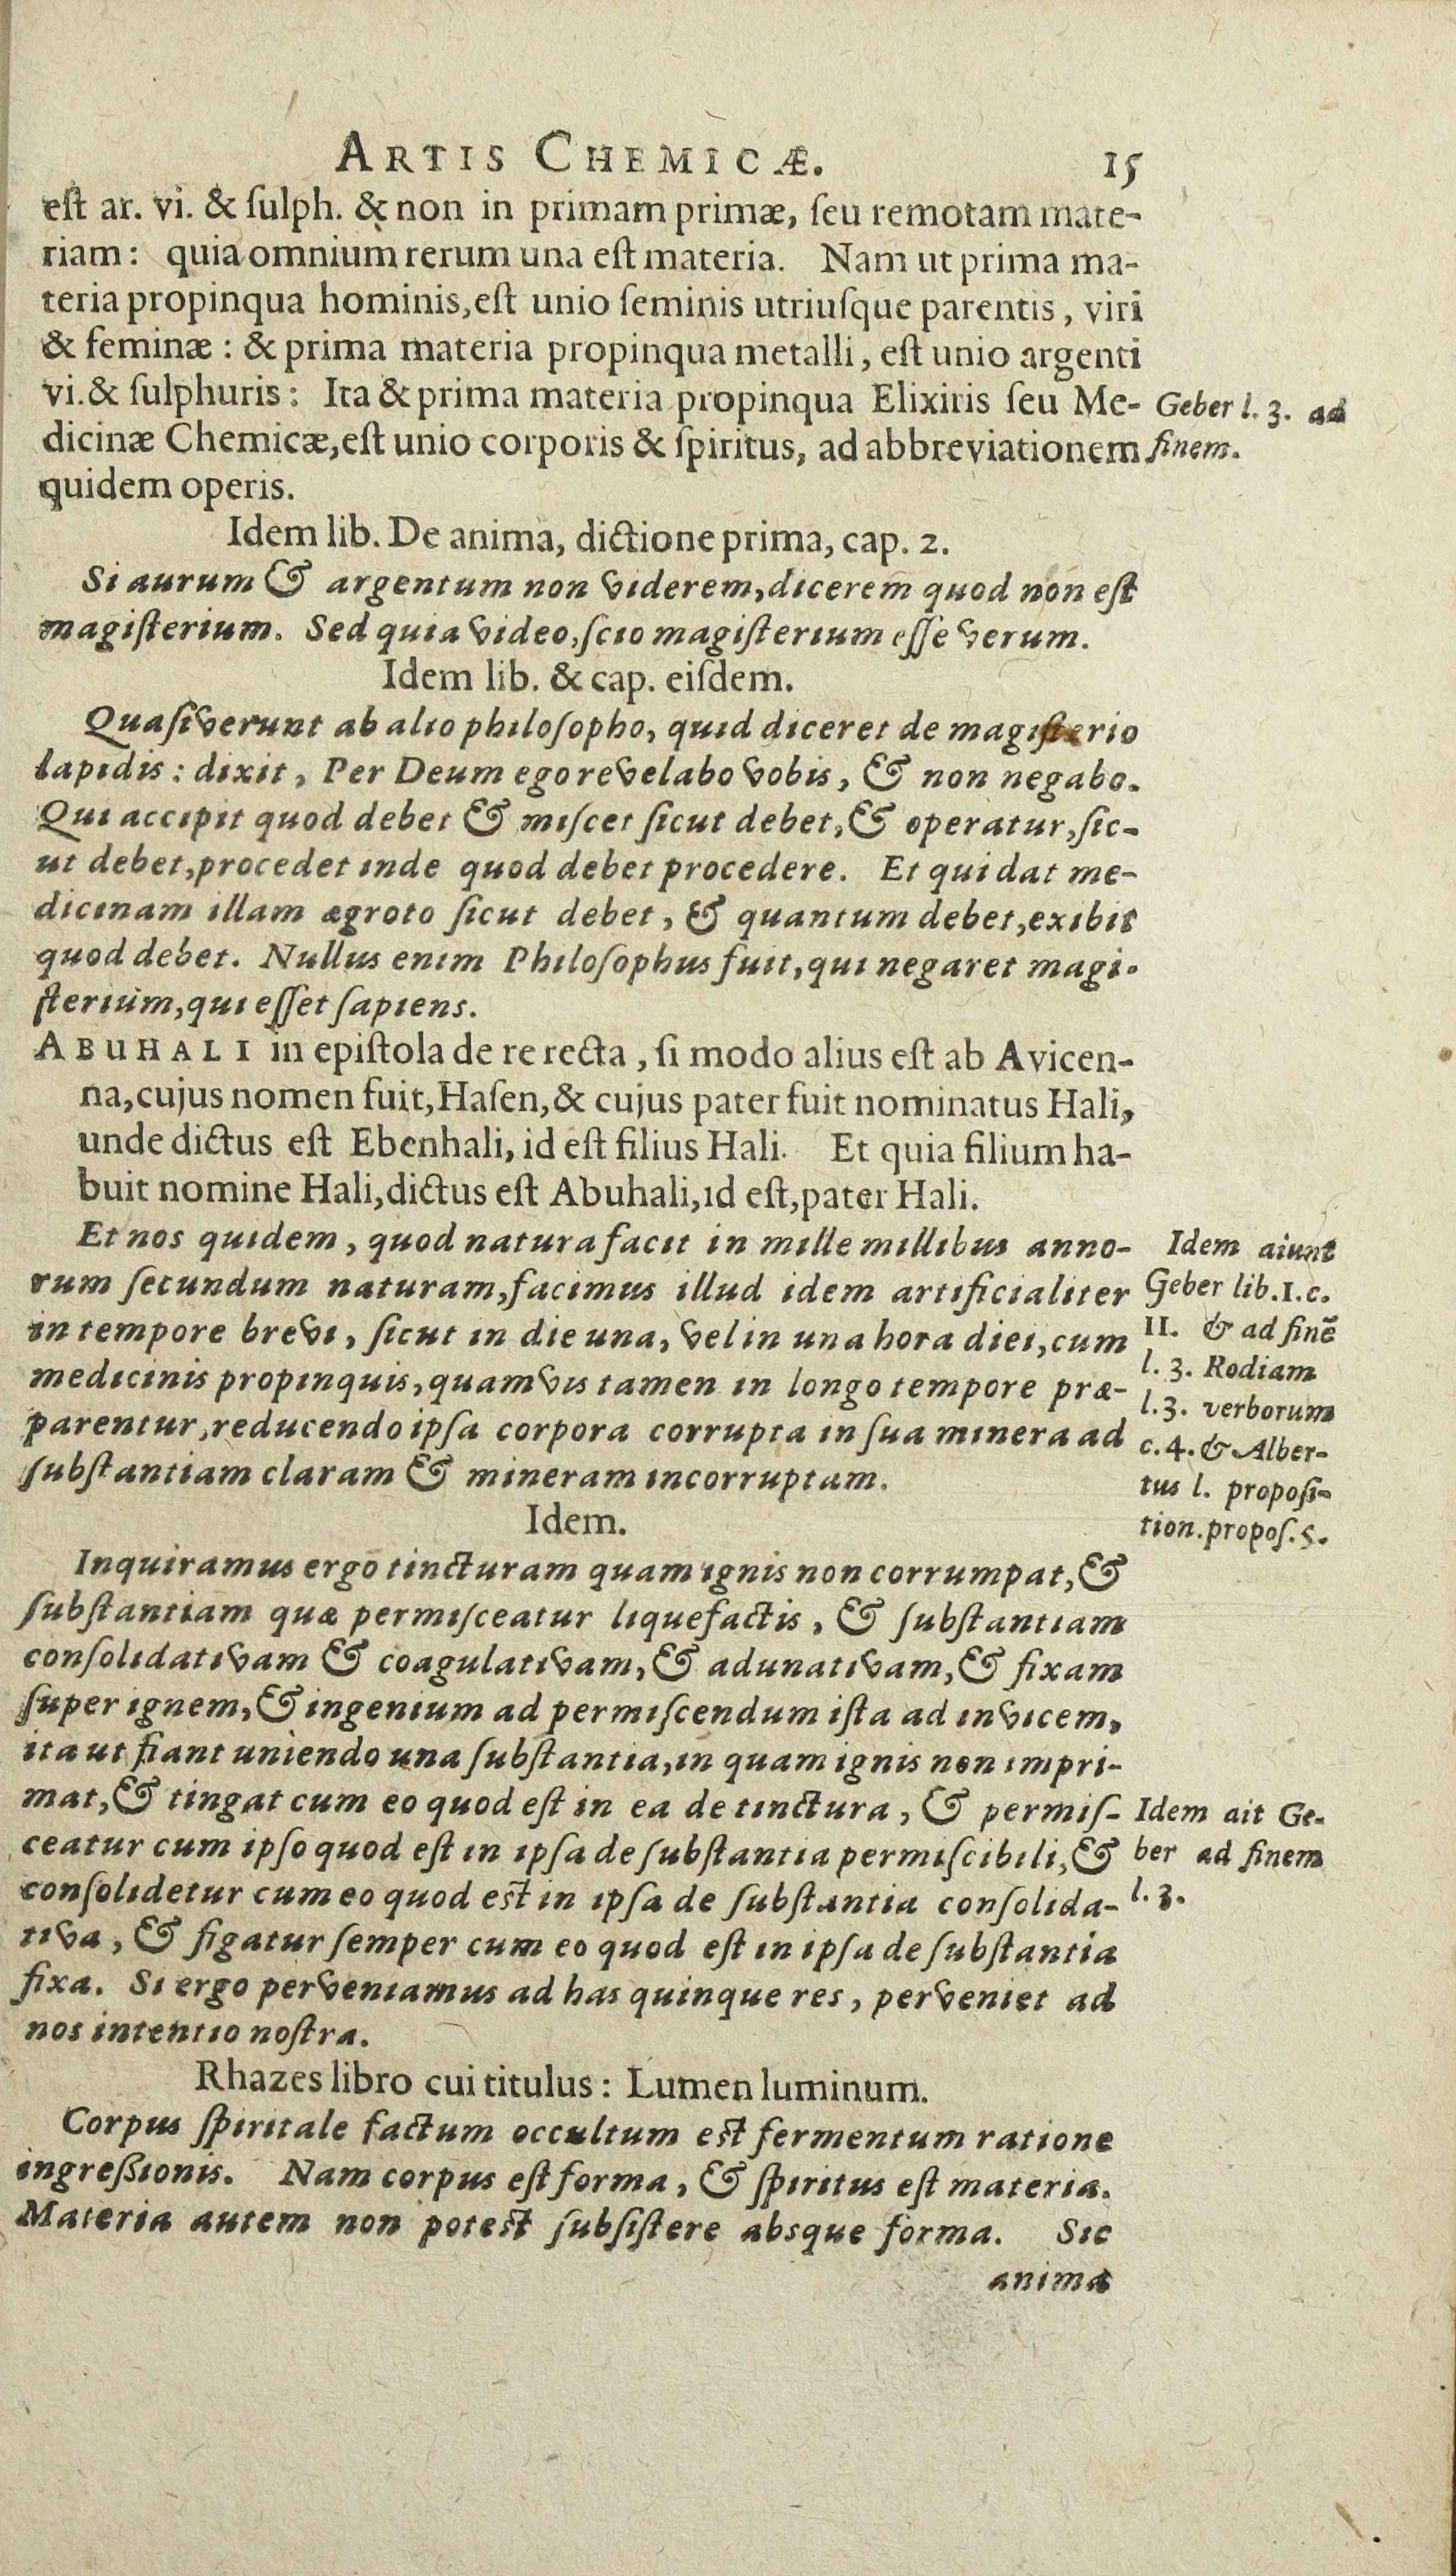 ARTIS CHEMICÆ. 15
est ar. vi. & sulph. & non in primam primæ, seu remotam mate-
riam: quia omnium rerum una est materia. Nam ut prima ma-
teria propinqua hominis, est unio seminis utriusque parentis, viri
& feminæ: & prima materia propinqua metalli, est unio argenti
vi. & sulphuris: Ita & prima materia propinqua Elixiris seu Me-
dicinæ Chemicæ, est unio corporis & spiritus, ad abbreviationem
quidem operis.
Geber l. 3. ad
finem.
Idem lib. De anima, dictione prima, cap. 2.
Si aurum & argentum non viderem, dicerem quod non est
magisterium. Sed quia video, scio magisterium esse verum.
Idem lib. & cap. eisdem.
Quasiverunt ab alio philosopho, quid diceret de magisterio
lapidis: dixit, Per Deum ego revelabo vobis, & non negabo.
Qui accipit quod debet & miscet sicut debet, & operatur, sic-
ut debet, procedet inde quod debet procedere. Et qui dat me-
dicinam illam ægroto sicut debet, & quantum debet, exibit
quod debet. Nullus enim Philosophus fuit, qui negaret magi-
sterium, qui esset sapiens.
ABUHALI in epistola de re recta, si modo alius est ab Avicen-
na, cujus nomen fuit, Hasen, & cujus pater fuit nominatus Hali,
unde dictus est Ebenhali, id est filius Hali. Et quia filium ha-
buit nomine Hali, dictus est Abuhali, id est, pater Hali.
Et nos quidem, quod natura facit in mille millibus anno-
rum secundum naturam, facimus illud idem artificialiter
in tempore brevi, sicut in die una, vel in una hora diei, cum
medicinis propinquis, quamvis tamen in longo tempore præ-
parentur, reducendo ipsa corpora corrupta in sua minera ad
substantiam claram & mineram incorruptam.
Idem aiunt
Geber lib. 1. c.
11. & ad finē
l. 3. Rodiam
l. 3. verborum
c. 4. & Alber-
tus l. proposi-
tion. propos. 5.
Idem.
Inquiramus ergo tincturam quam ignis non corrumpat, &
substantiam quæ permisceatur liquefactis, & substantiam
consolidativam & coagulativam, & adunativam, & fixam
super ignem, & ingenium ad permiscendum ista ad invicem,
ita ut fiant uniendo una substantia, in quam ignis non impri-
mat, & tingat cum eo quod est in ea de tinctura, & permis-
ceatur cum ipso quod est in ipsa de substantia permiscibili, &
consolidetur cum eo quod est in ipsa de substantia consolida-
tiva, & figatur semper cum eo quod est in ipsa de substantia
fixa. Si ergo perveniamus ad has quinque res, perveniet ad
nos intentio nostra.
Idem ait Ge-
ber ad finem
l. 3.
Rhazes libro cui titulus: Lumen luminum.
Corpus spiritale factum occultum est fermentum ratione
ingreßionis. Nam corpus est forma, & spiritus est materia.
Materia autem non potest subsistere absque forma. Sic
anima